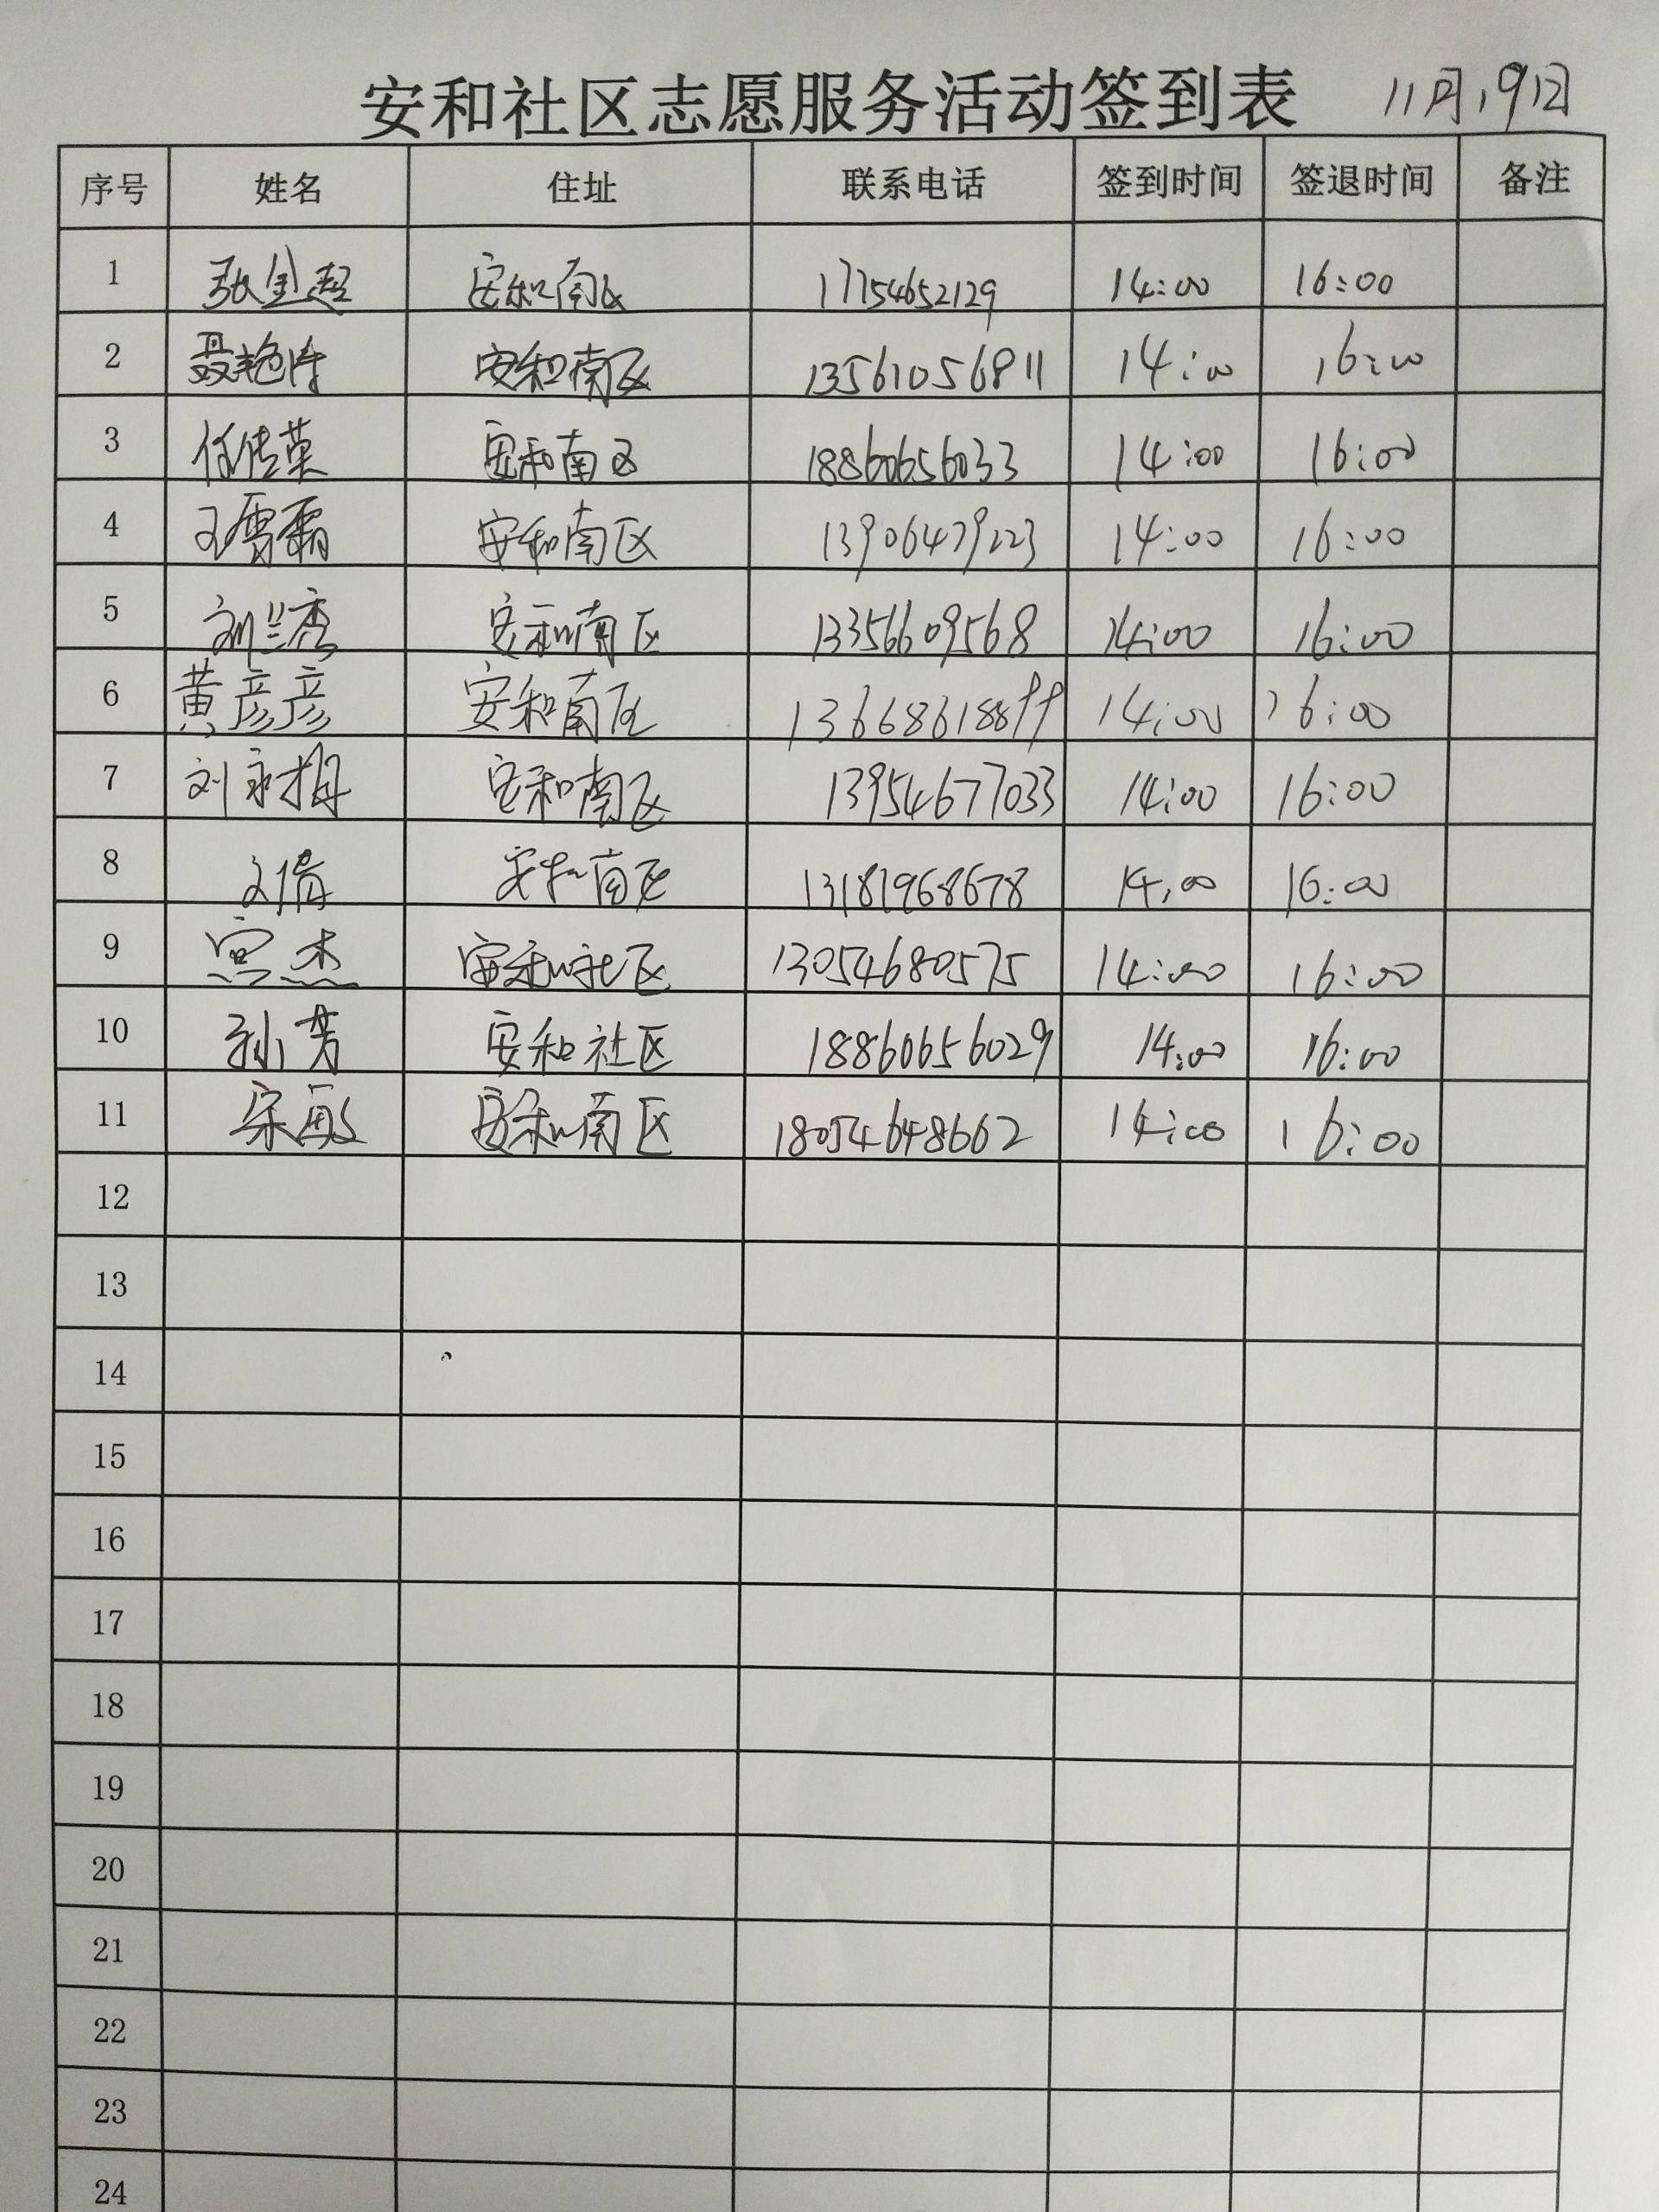 安和社区志愿服务活动签到表 11月19日
序号 姓名 住址 联系电话 签到时间 签退时间 备注
1 张金超 安和南区 17754652129 14:00 16:00
2 聂艳 安和南区 13561056811 14:00 16:00
3 任传荣 安和南区 18860656033 14:00 16:00
4 王雪霜 安和南区 13906479223 14:00 16:00
5 刘兰秀 安和南区 13356609568 14:00 16:00
6 黄彦彦 安和南区 14:00 16:00
7 刘永梅 安和南区 13954677033 14:00 16:00
8 文倩 安和南区 13181968678 14:00 16:00
9 宫杰 安和社区 13054680575 14:00 16:00
10 孙芳 安和社区 18860656029 14:00 16:00
11 宋敏 安和南区 18054648662 14:00 16:00
12
13
14
15
16
17
18
19
20
21
22
23
24